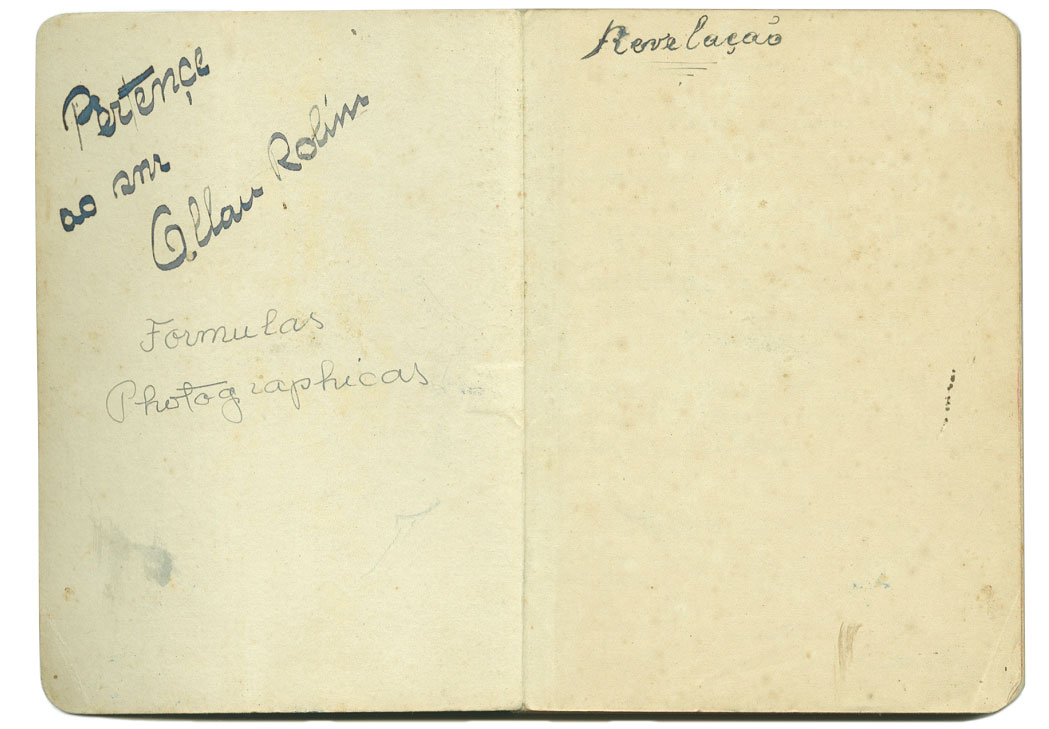 Pertençe
ao snr
Allan Rolim
Formulas
Photographicas
Revelação